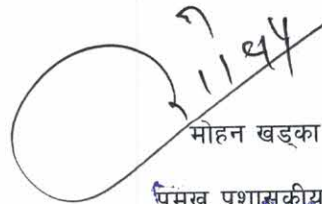 मोहन खड्का
प्रमुख प्रशासकीय